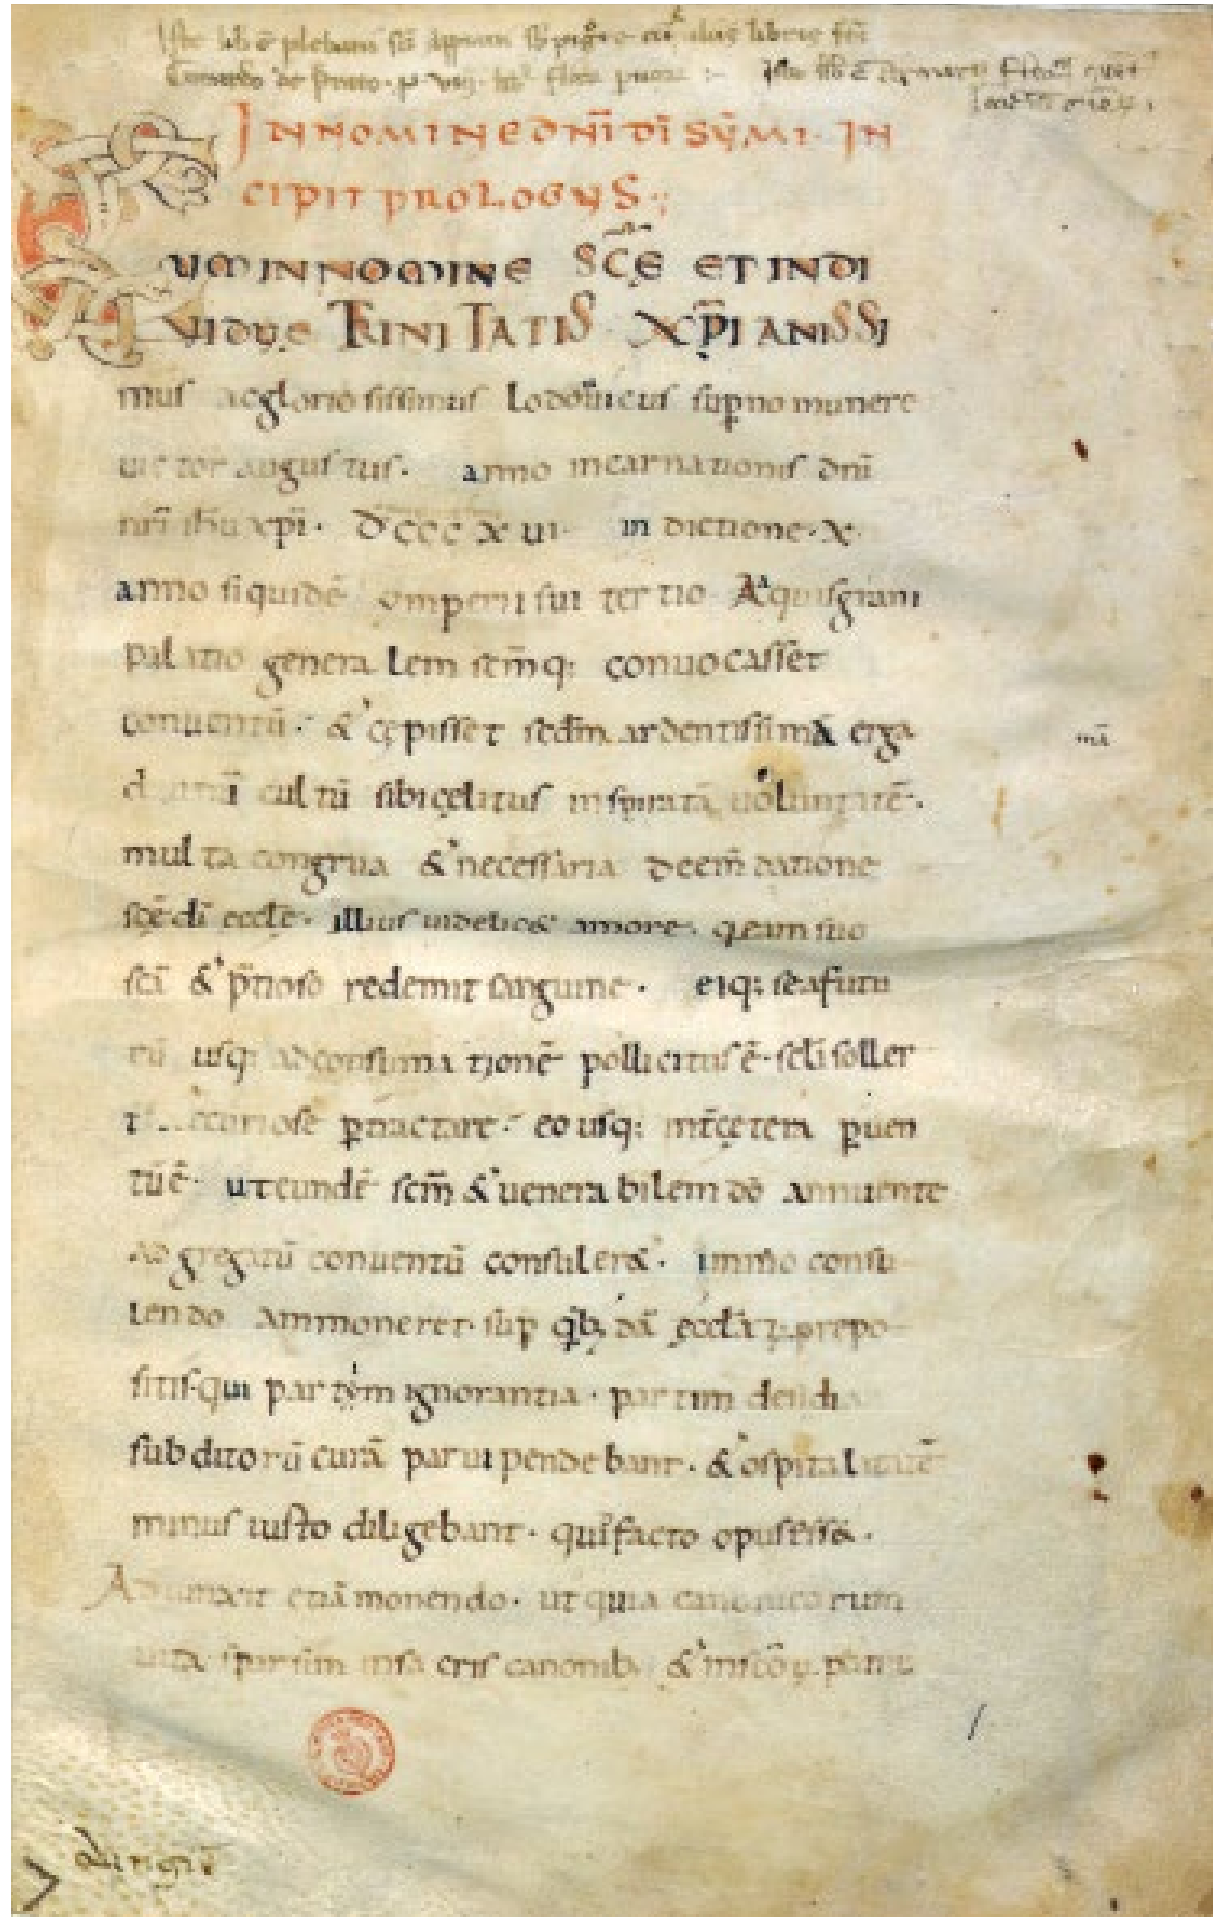 IN NOMINE DNI DI SUMMI. IN
CIPIT PROLOGUS;
UM IN NOMINE SCE ET INDI
VIDUE TRINITATIS XPIANISSI
mus ac gloriosissimus Lodouuicus supno munere
uictor augustus. anno incarnationis dni
nri ihu xpi. DCCCXVI. indictione. X.
anno siquidē imperii sui tertio Aquisgrani
palatio generalem scmq; conuocasset
conuentū. & cępisset scdm ardentissimā erga
diuinū cultū sibi cęlitus inspiratā uoluntatē.
mī
multa congrua & necessaria de emdatione
scę di eccle. illius uidelic& amore. qeam suo
scō & ptioso redemit sanguine. eiq; se a futu
rū usq; ad consumationē pollicitus ē. scli soller
ter curiose ptractare. eo usq; int cetera puen
tū ē. ut eundē scm & uenerabilem dō annuente
adgregatū conuentū consuler&. immo consu
lendo ammoneret. sup qb; dā ecclāȝ prepo
sitis. qui partim ignorantia. partim desidia
subditorū curā paruipendebant. & ospitalitatē
minus iusto diligebant. quid facto opus ess&.
Adiunxit etiā monendo. ut quia canonicorum
uita sparsim in sacris canonib;